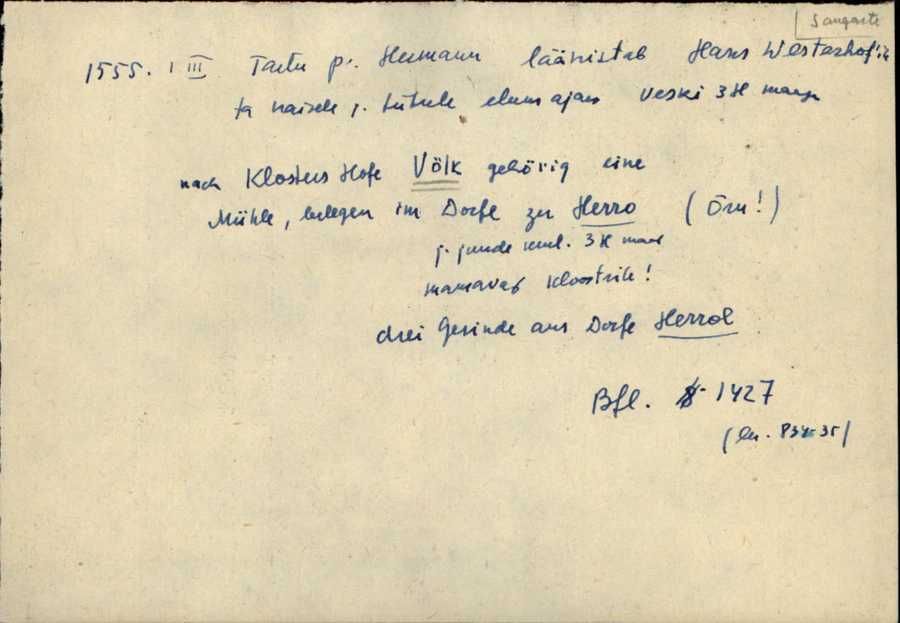 Sangaste
1555. 1 III Tartu p. Hermann läänistab Hans Westerhof'ile
ta naisele j. tütrele eluajaks veski 3 H maaga
nach Klosters Hofe Völk gehörig eine
Mühle, belegen im Dorfe zu Herro (Õru!)
j. juurde veel. 3 H maad
maavad kloostrile!
drei Gesinde aus Dorfe Herrol
Bfl. 8-1427
(lk. 834-35)